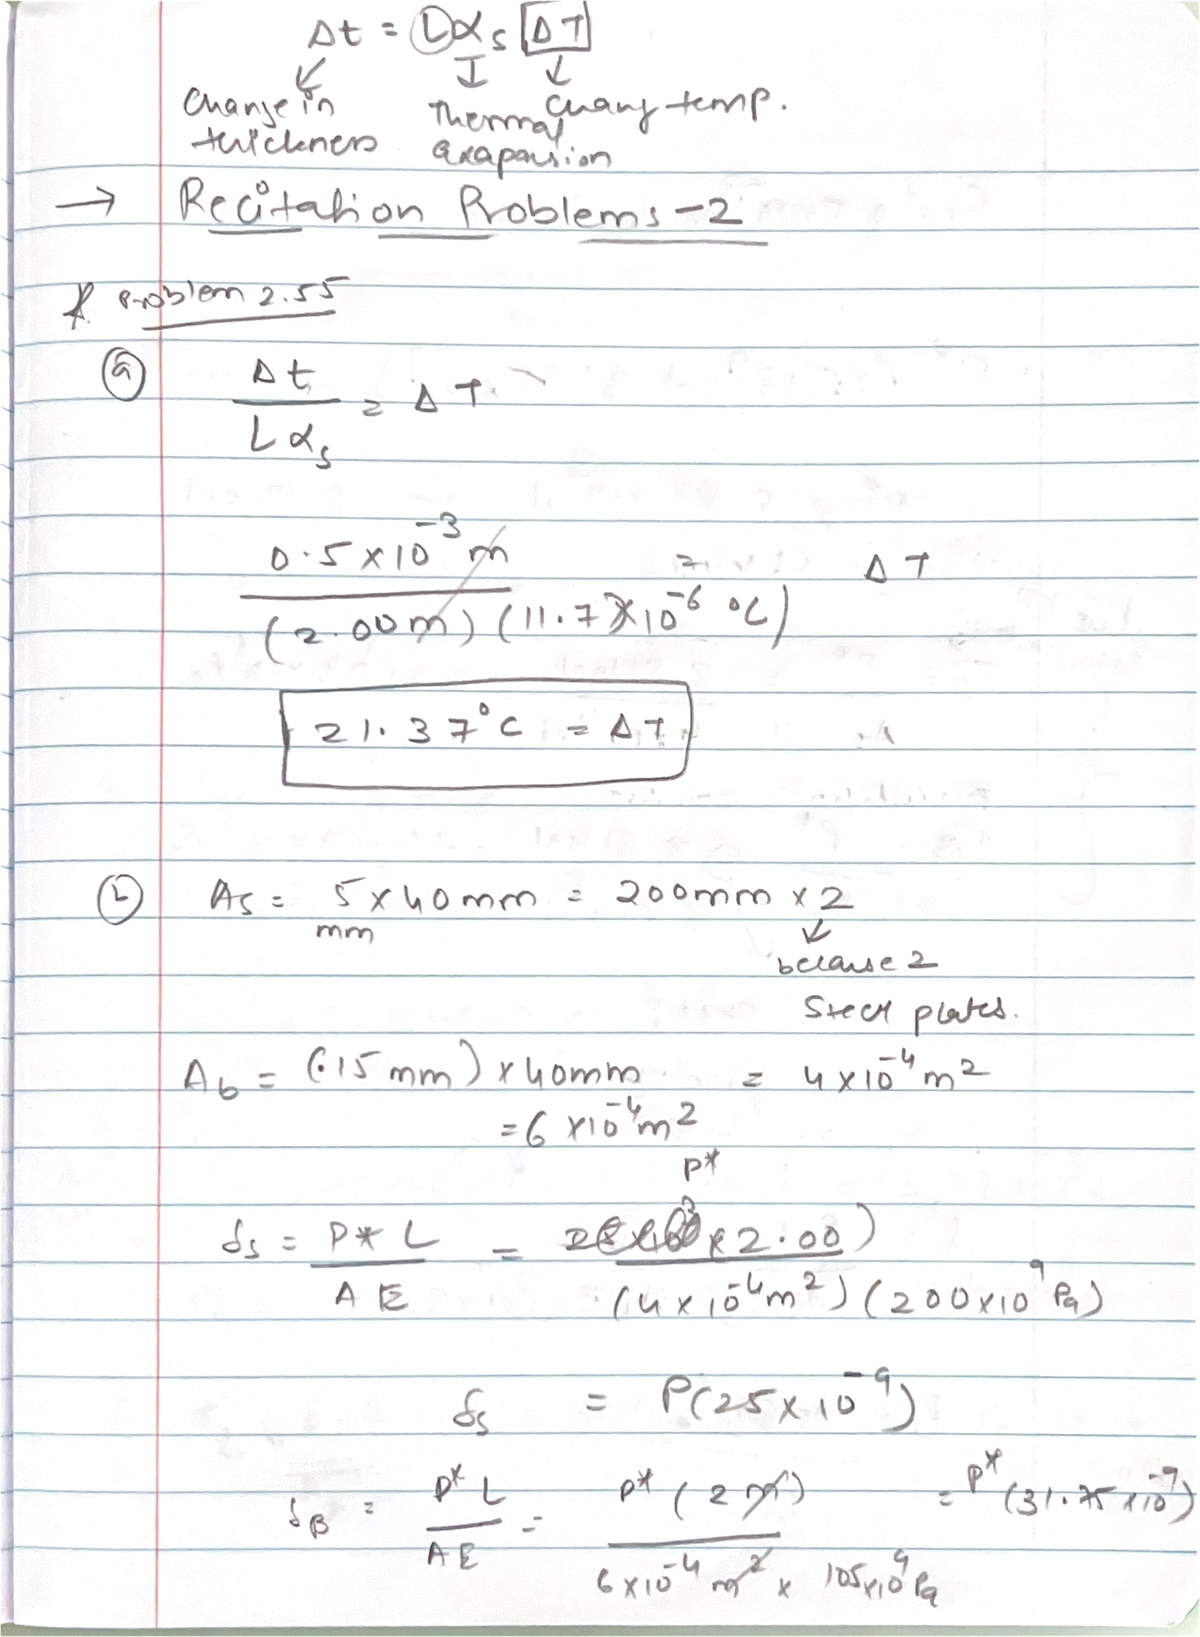 Δt = Lα_s ΔT
Change in thickness
Thermal exapansion
Chang temp.
→ Recitation Problems -2
* Problem 2.55
(a) Δt / Lα_s = ΔT
0.5 × 10^-3 m / (2.00 m) (11.7 × 10^-6 °C) = ΔT
21.37°C = ΔT
(b) As = 5 mm × 40 mm = 200mm × 2
because 2
Steel plates.
= 4 × 10^-4 m^2
A_b = (15 mm) × 40mm
= 6 × 10^-4 m^2
P*
δ_s = P* L / A E = × 2.00) / (4 × 10^-4 m^2) (200×10^9 Pa)
δ_s = P(25 × 10^-9)
δ_B = P* L / A E = P* (2 m) / 6 × 10^-4 m^2 × 105×10^9 Pa = P* (31.75 × 10^-9)